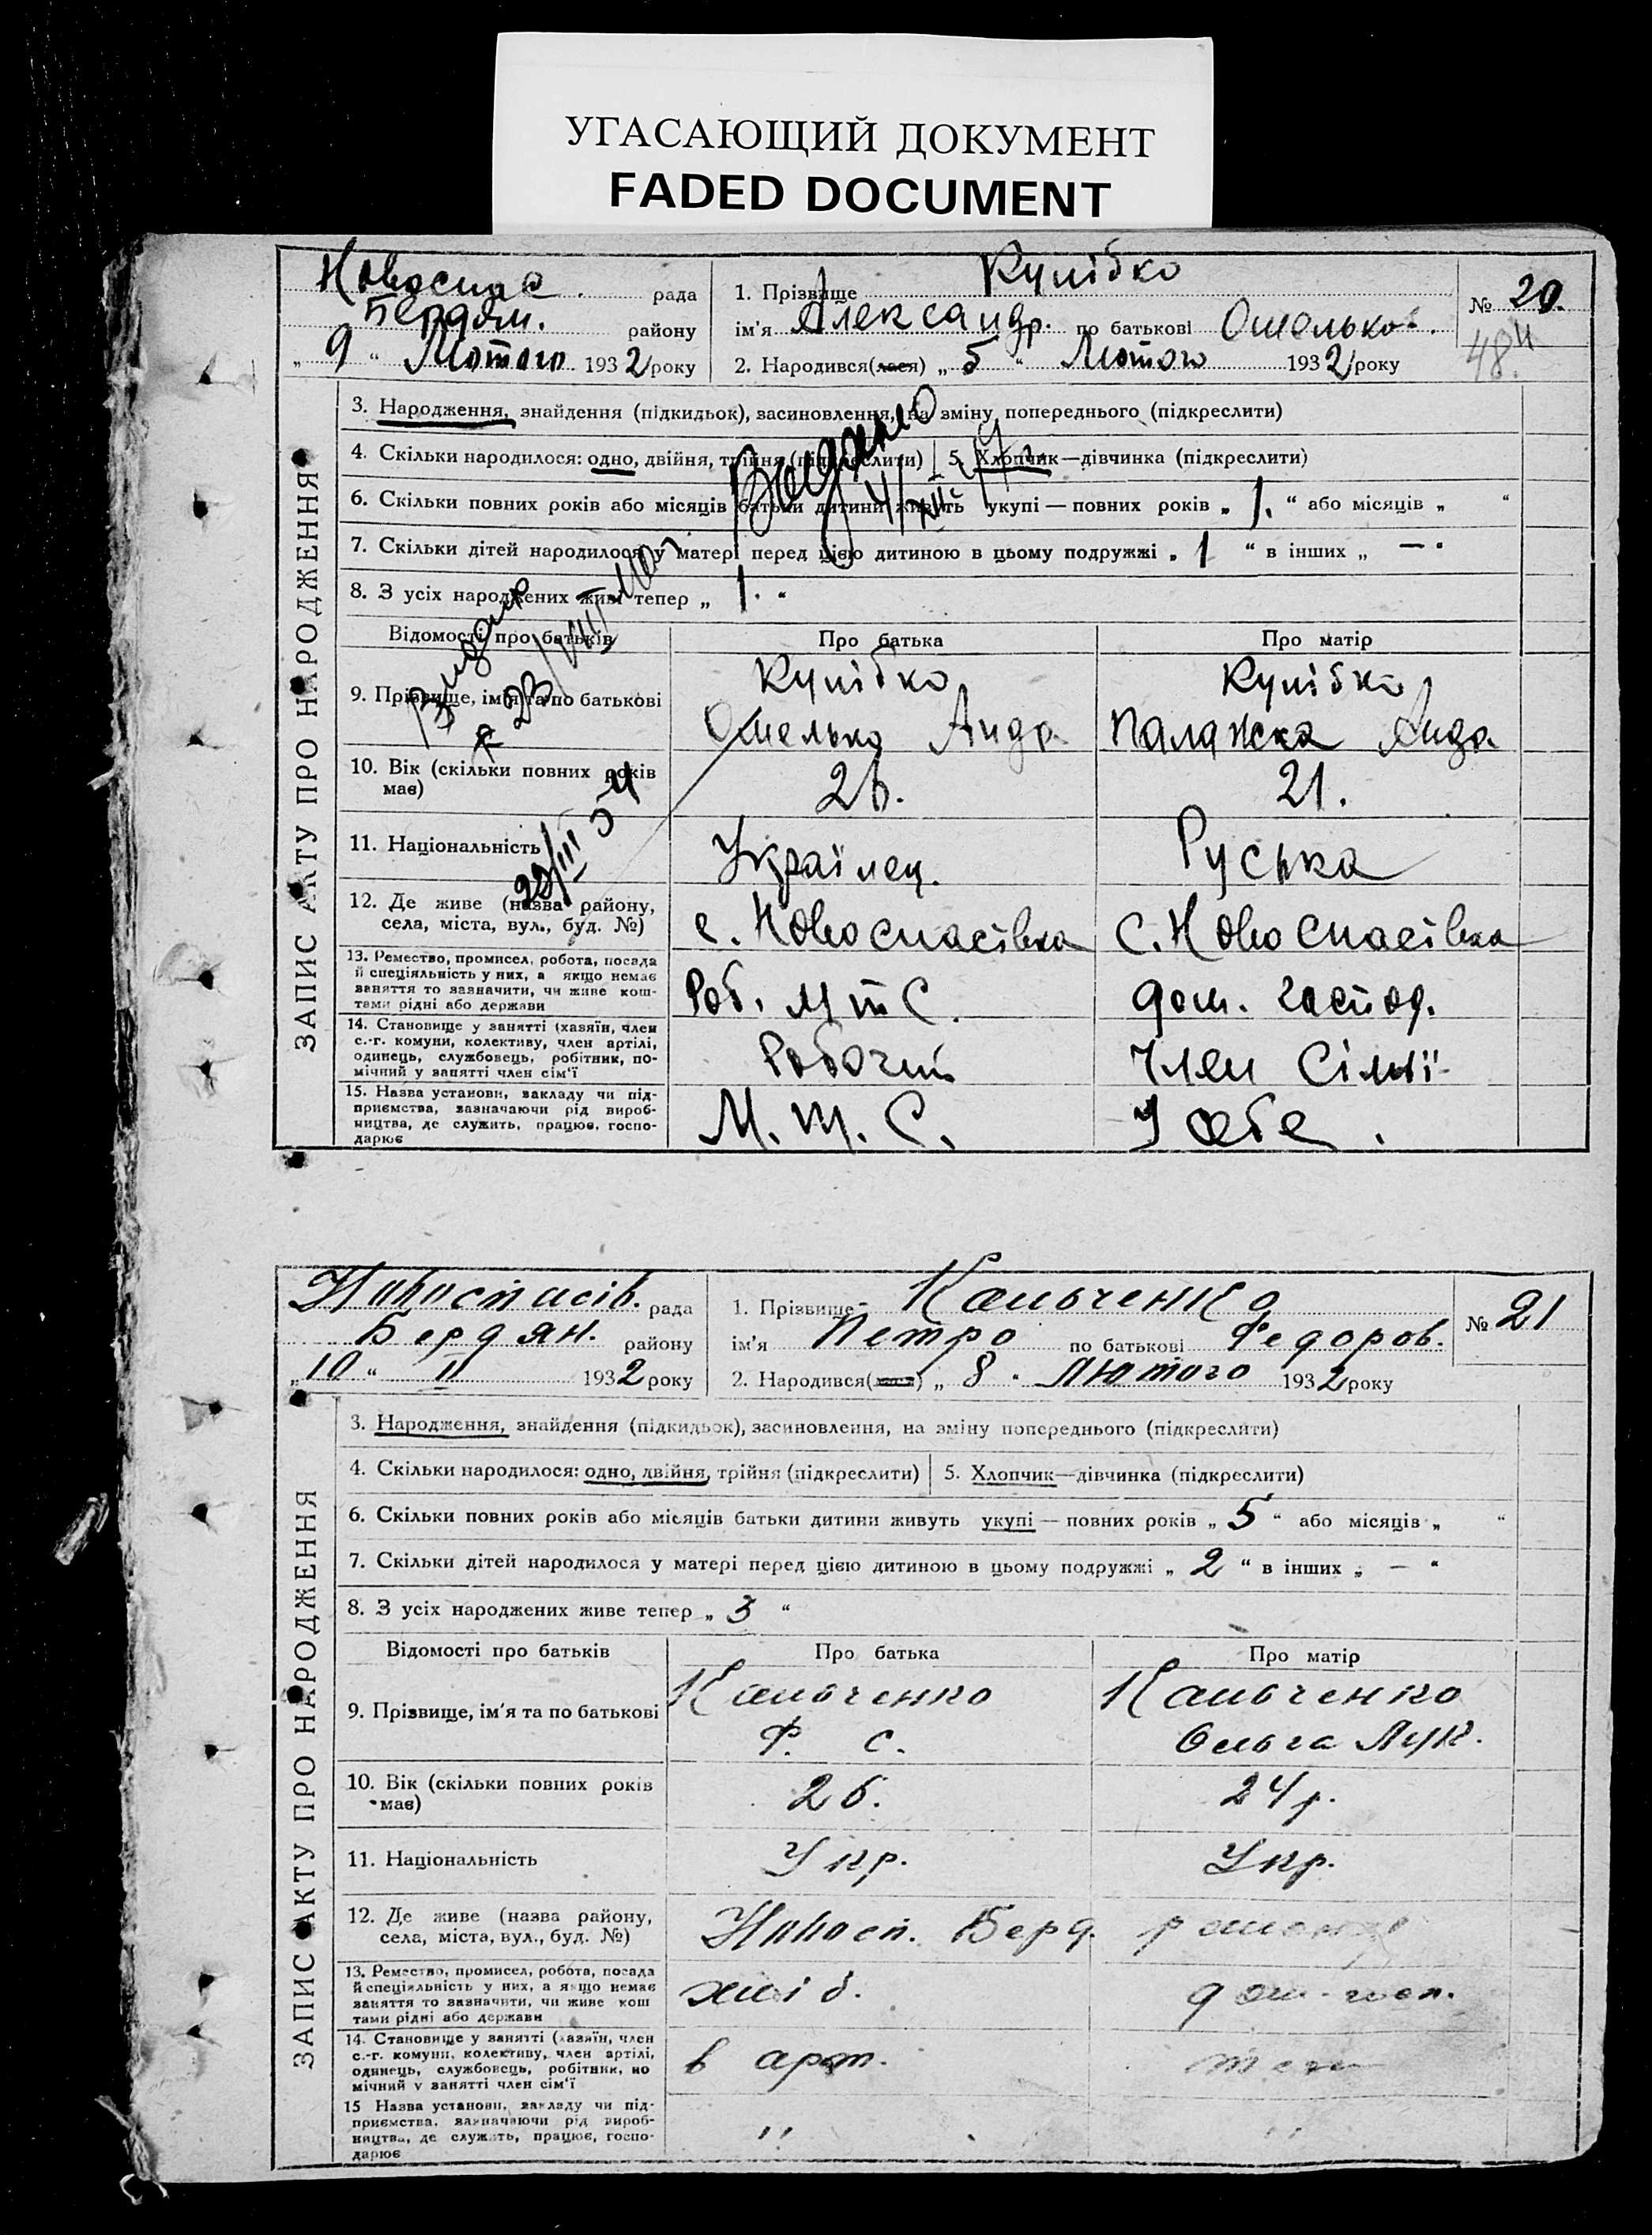 УГАСАЮЩИЙ ДОКУМЕНТ
FADED DOCUMENT
Новоспас. рада
Бердян. району
„ 9 “ Лютого 1932 року
1. Прізвище Кулібко
ім'я Александр. по батькові Омелько.
2. Народився(лася) „ 5 “ Лютого 1932 року
№ 20.
ЗАПИС АКТУ ПРО НАРОДЖЕННЯ
3. Народження, знайдення (підкидьок), засиновлення, на зміну попереднього (підкреслити)
4. Скільки народилося: одно, двійня, трійня (підкреслити) 5. Хлопчик—дівчинка (підкреслити)
6. Скільки повних років або місяців батьки дитини живуть укупі — повних років „ 1. “ або місяців „ “
7. Скільки дітей народилося у матері перед цією дитиною в цьому подружжі „ 1 “ в інших „ — “
8. З усіх народжених живі тепер „ 1. “
Відомості про батьків Про батька Про матір
9. Прізвище, ім'я та по батькові
Кулібко Кулібко
Омелько Андр. Палажка Андр.
10. Вік (скільки повних років має) 26. 21.
11. Національність Українец. Руська
12. Де живе (назва району, села, міста, вул., буд. №) с. Новоспасівка С. Новоспасівка
13. Ремество, промисел, робота, посада
й спеціяльність у них, а якщо немає
заняття то зазначити, чи живе кош-
тами рідні або держави
Роб. МТС. дом. господ.
14. Становище у занятті (хазяїн, член
с.-г. комуни, колективу, член артілі,
одинець, службовець, робітник, по-
мічний у занятті член сім'ї
Робочий Член Сімьї
15. Назва установи, закладу чи під-
приємства, зазначаючи рід вироб-
ництва, де служить, працює, госпо-
дарює
М. Т. С. У себе.
Видано
Новоспасів. рада
Бердян. району
„ 10 “ II 1932 року
1. Прізвище Кальченко
ім'я Петро по батькові Федоров.
2. Народився(лася) „ 8 “ Лютого 1932 року
№ 21
ЗАПИС АКТУ ПРО НАРОДЖЕННЯ
3. Народження, знайдення (підкидьок), засиновлення, на зміну попереднього (підкреслити)
4. Скільки народилося: одно, двійня, трійня (підкреслити) 5. Хлопчик—дівчинка (підкреслити)
6. Скільки повних років або місяців батьки дитини живуть укупі — повних років „ 5 “ або місяців „ “
7. Скільки дітей народилося у матері перед цією дитиною в цьому подружжі „ 2 “ в інших „ — “
8. З усіх народжених живе тепер „ 3 “
Відомості про батьків Про батька Про матір
9. Прізвище, ім'я та по батькові
Кальченко Кальченко
Ф. С. Ольга Лук.
10. Вік (скільки повних років має) 26. 24 р.
11. Національність Укр. Укр.
12. Де живе (назва району, села, міста, вул., буд. №) Новосп. Берд. району
13. Ремество, промисел, робота, посада
й спеціяльність у них, а якщо немає
заняття то зазначити, чи живе кош
тами рідні або держави
хліб. дом. госп.
14. Становище у занятті (хазяїн, член
с.-г. комуни, колективу, член артілі,
одинець, службовець, робітник, по
мічний у занятті член сім'ї
в арт.
15 Назва установи, закладу чи під-
приємства, зазначаючи рід вироб-
ництва, де служить, працює, госпо-
дарює
" "